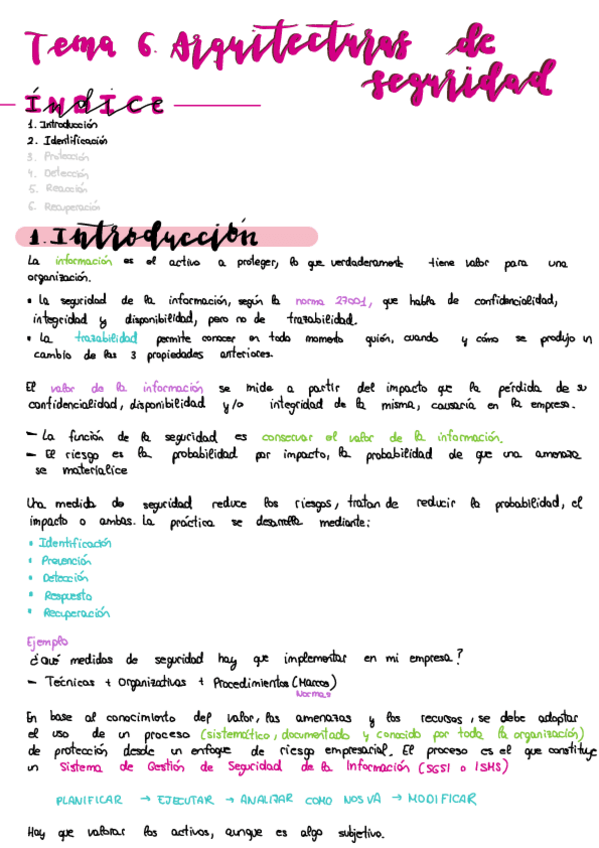 Tema 6. Arquitecturas de
seguridad
ÍNDICE
índice
1. Introducción
2. Identificación
3. Protección
4. Detección
5. Reacción
6. Recuperación
1. Introducción
La información es el activo a proteger, lo que verdaderamente tiene valor para una
organización.
• La seguridad de la información, según la norma 27001, que habla de confidencialidad,
integridad y disponibilidad, pero no de trazabilidad.
• La trazabilidad permite conocer en todo momento quién, cuando y cómo se produjo un
cambio de las 3 propiedades anteriores.
El valor de la información se mide a partir del impacto que la pérdida de su
confidencialidad, disponibilidad y/o integridad de la misma, causaría en la empresa.
- La función de la seguridad es conservar el valor de la información.
- El riesgo es la probabilidad por impacto, la probabilidad de que una amenaza
se materialice
Una medida de seguridad reduce los riesgos, tratan de reducir la probabilidad, el
impacto o ambas. La práctica se desarrolla mediante:
• Identificación
• Prevención
• Detección
• Respuesta
• Recuperación
Ejemplo
¿Qué medidas de seguridad hay que implementar en mi empresa?
- Técnicas + Organizativas + Procedimientos (Marcos)
Normas
En base al conocimiento del valor, las amenazas y los recursos, se debe adoptar
el uso de un proceso (sistemático, documentado y conocido por toda la organización)
de protección desde un enfoque de riesgo empresarial. El proceso es el que constituye
un Sistema de Gestión de Seguridad de la Información (SGSI o ISMS)
PLANIFICAR → EJECUTAR → ANALIZAR COMO NOS VA → MODIFICAR
Hay que valorar los activos, aunque es algo subjetivo.